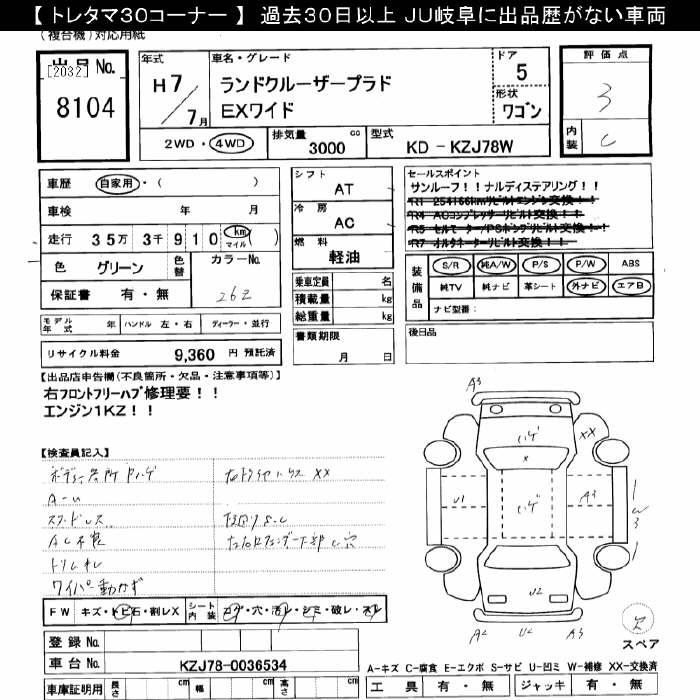 【 トレタマ30コーナー 】 過去30日以上 JU岐阜に出品歴がない車両
(複合機)対応用紙
出品No.
[2032]
8104
年式
H7/7月
車名・グレード
ランドクルーザープラド
EXワイド
ドア
5
形状
ワゴン
評価点
3
内装
C
2WD・4WD
排気量
3000 cc
型式
KD - KZJ78W
車歴 自家用・( )
車検 年 月
走行 35万 3千910 km マイル
色 グリーン 色替
カラーNo.
262
保証書 有・無
モデル年式 年 ハンドル 左・右 ディーラー・並行
リサイクル料金 9,360 円 預託済
シフト
AT
冷房
AC
燃料
軽油
乗車定員 名
積載量 kg
総重量 kg
書類期限
月 日
セールスポイント
サンルーフ!!ナルディステアリング!!
R1 254166kmリビルトエンジン交換!!
R4 ACコンプレッサーリビルト交換!!
R5 セルモーター/PSポンプリビルト交換!!
R7 オルタネーターリビルト交換!!
装備品
S/R 純A/W P/S P/W ABS
純TV 純ナビ 革シート 外ナビ エアB
ナビ型番:
後日品
【出品店申告欄(不良箇所・欠品・注意事項等)】
右フロントフリーハブ修理要!!
エンジン1KZ!!
【検査員記入】
A-U
スタッドレス
AC不良
トリムキレ
ワイパー動かず
A3
XX
X
U1
A3
W3
U2
A2
U2
A3
スペア
FW キズ・トビ石・割レX シート内装 コゲ・穴・汚レ・シミ・破レ・スレ
登録No.
車台No. KZJ78-0036534
車庫証明用 長さ cm 幅 cm 高さ cm
A-キズ C-腐食 E-エクボ S-サビ U-凹ミ W-補修 XX-交換済
工具 有・無 ジャッキ 有・無